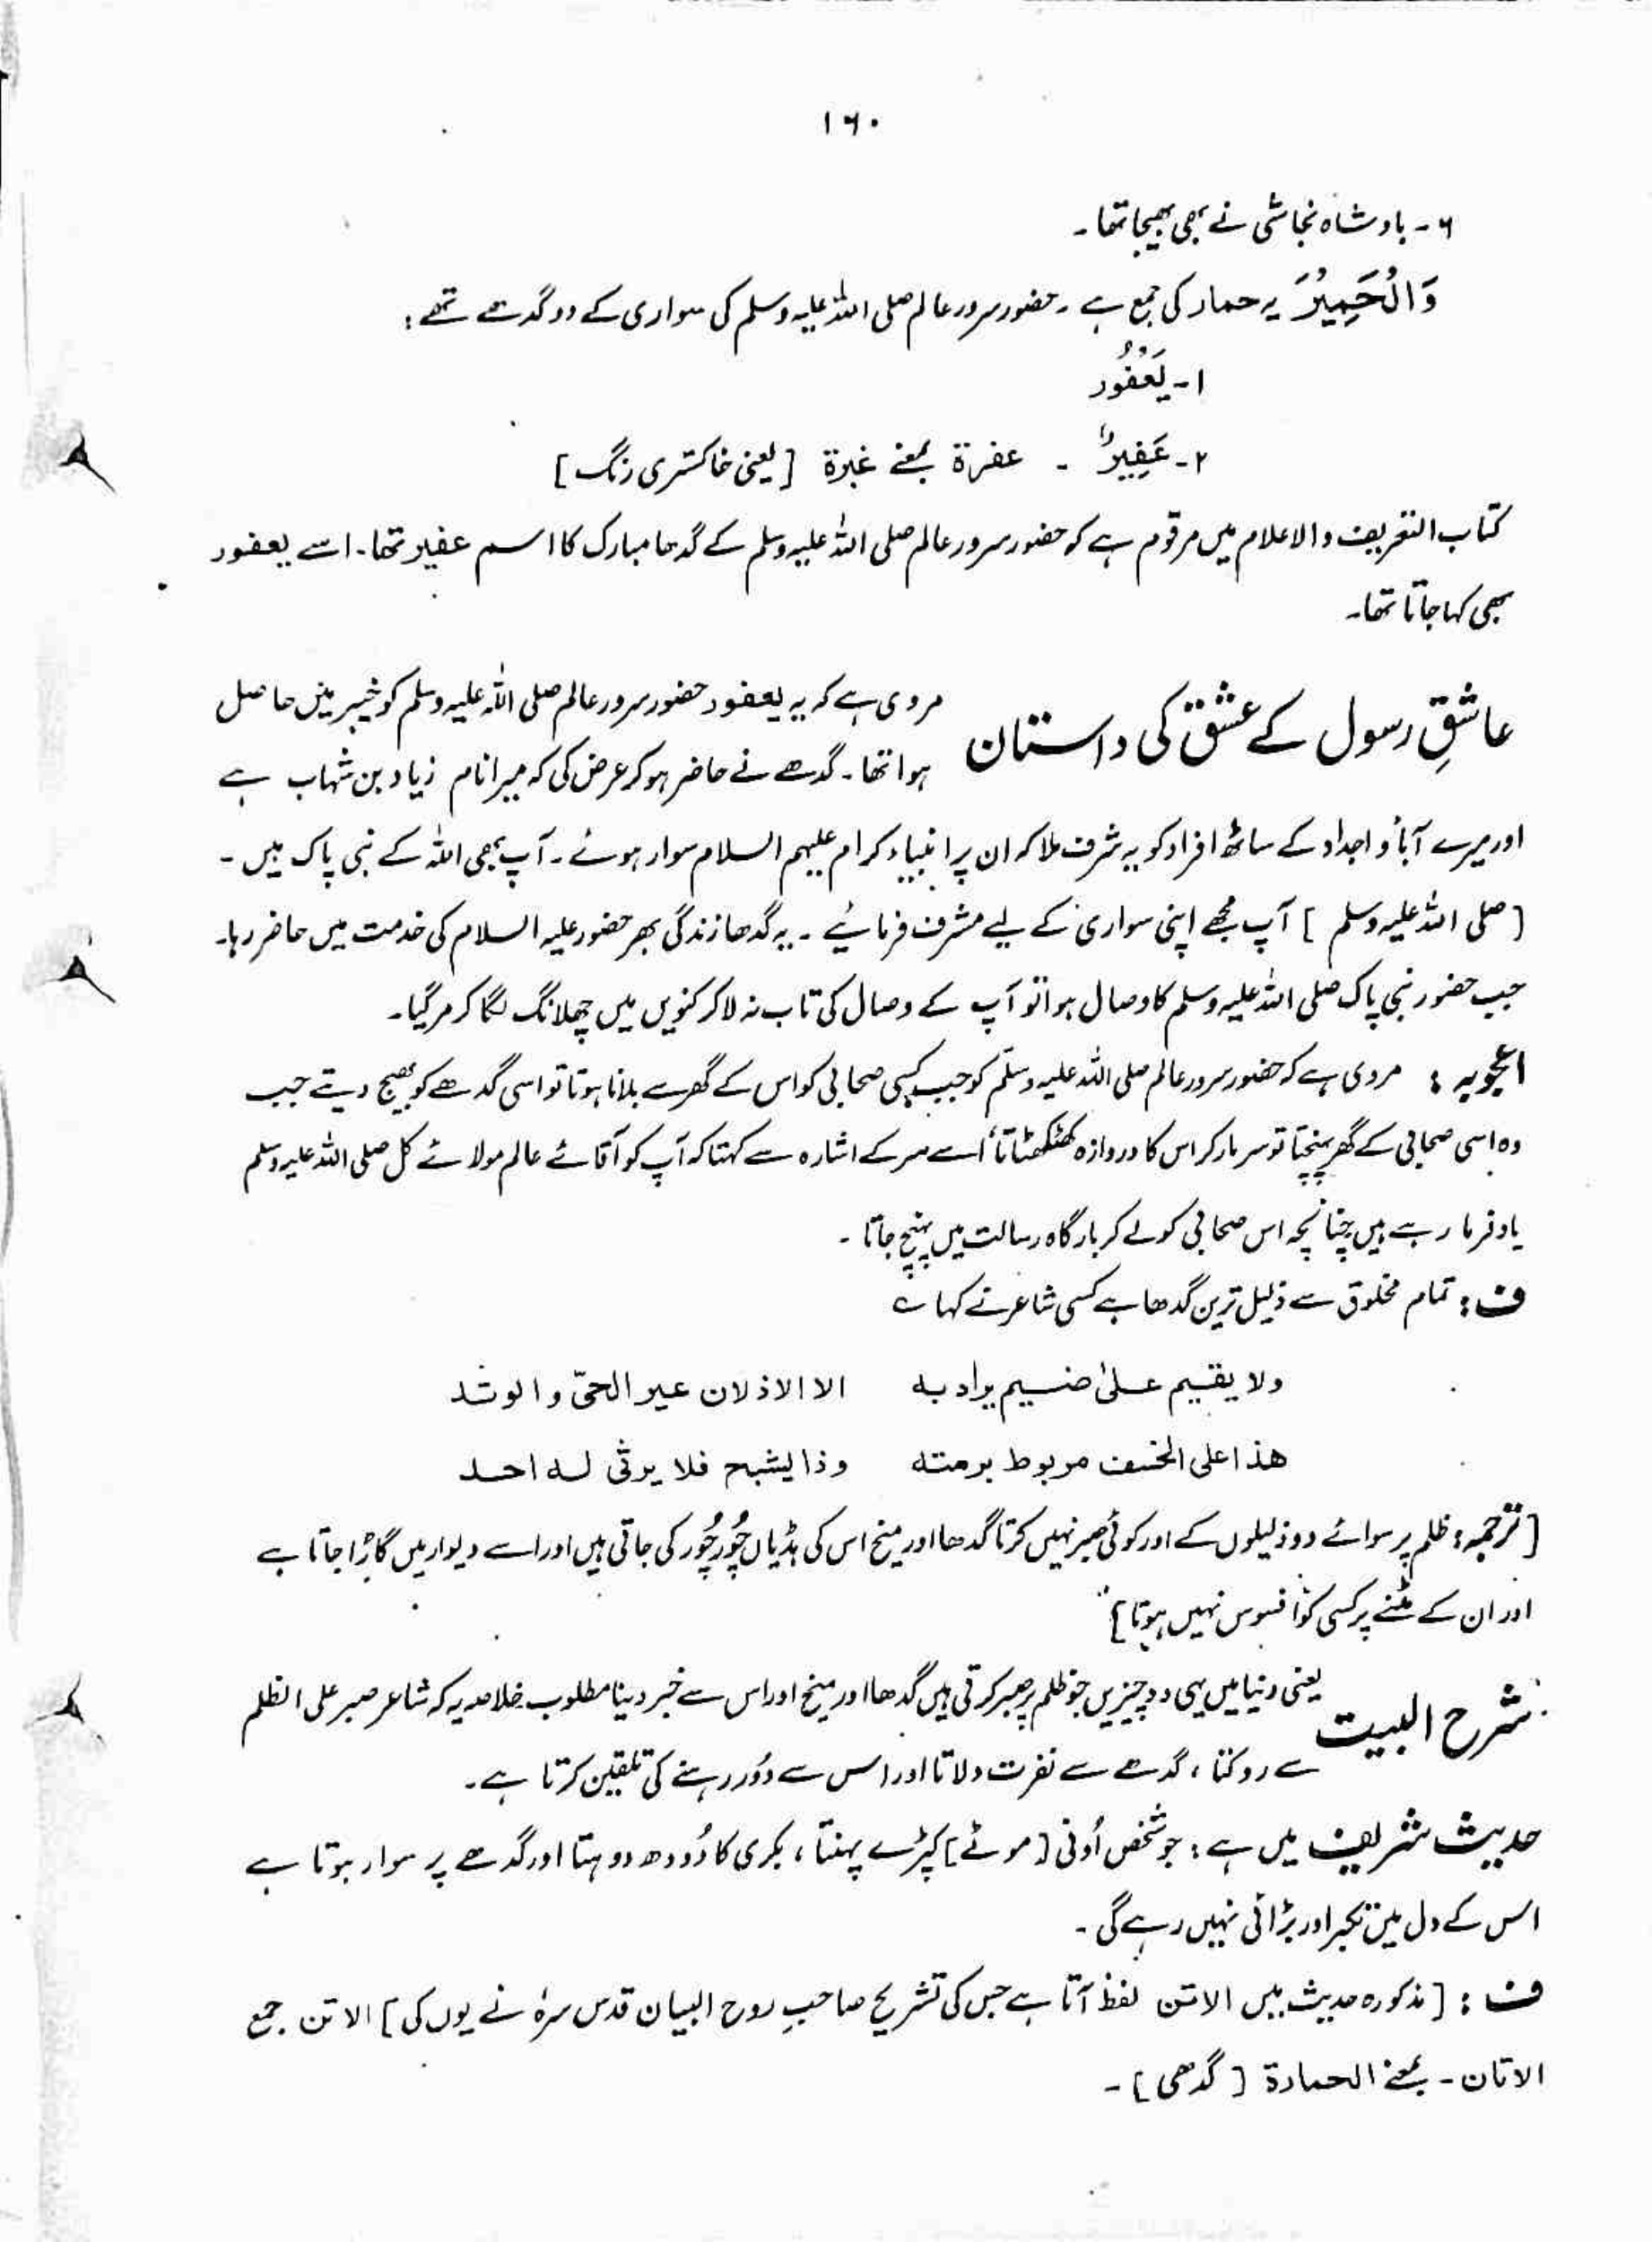 ۱۶۰
۶۔ بادشاہ نجاشی نے بھی بھیجا تھا۔
وَالْحَمِیْرَ یہ حمار کی جمع ہے ۔ حضور سرور عالم صلی اللہ علیہ وسلم کی سواری کے دو گدھے تھے :
۱۔ یَعْفُوْر
۲۔ عَفِیْرٌ ۔ عفرۃ بمعنے غبرۃ [ یعنی خاکستری رنگ ]
کتاب التعریف والاعلام میں مرقوم ہے کہ حضور سرور عالم صلی اللہ علیہ وسلم کے گدھا مبارک کا اسم عفیر تھا۔ اسے یعفور
بھی کہا جاتا تھا۔
عاشقِ رسول کے عشق کی داستان
مروی ہے کہ یہ یعفور حضور سرور عالم صلی اللہ علیہ وسلم کو خیبر میں حاصل
ہوا تھا۔ گدھے نے حاضر ہو کر عرض کی کہ میرا نام زیاد بن شہاب ہے
اور میرے آباؤ اجداد کے ساٹھ افراد کو یہ شرف ملا کہ ان پر انبیاء کرام علیہم السلام سوار ہوئے ۔ آپ بھی اللہ کے نبی پاک ہیں ۔
[ صلی اللہ علیہ وسلم ] آپ مجھے اپنی سواری کے لیے مشرف فرمائیے ۔ یہ گدھا زندگی بھر حضور علیہ السلام کی خدمت میں حاضر رہا۔
جب حضور نبی پاک صلی اللہ علیہ وسلم کا وصال ہوا تو آپ کے وصال کی تاب نہ لا کر کنویں میں چھلانگ لگا کر مر گیا۔
اعجوبہ : مروی ہے کہ حضور سرور عالم صلی اللہ علیہ وسلّم کو جب کسی صحابی کو اس کے گھر سے بلانا ہوتا تو اسی گدھے کو بھیج دیتے جب
وہ اسی صحابی کے گھر پہنچتا تو سر مار کر اس کا دروازہ کھٹکھٹاتا، اسے سر کے اشارہ سے کہتا کہ آپ کو آقائے عالم مولائے کل صلی اللہ علیہ وسلم
یاد فرما رہے ہیں چنانچہ اس صحابی کو لے کر بارگاہ رسالت میں پہنچ جاتا ۔
ف : تمام مخلوق سے ذلیل ترین گدھا ہے کسی شاعر نے کہا ے
ولا یقیم علیٰ ضیم یراد بہ الا الاذلان عیر الحیّ والوتد
ھذا علی الخسف مربوط برمتہ وذا یشبح فلا یرثی لہ احد
[ ترجمہ : ظلم پر سوائے دو ذلیلوں کے اور کوئی صبر نہیں کرتا گدھا اور میخ اس کی ہڈیاں چُور چُور کی جاتی ہیں اور اسے دیوار میں گاڑا جاتا ہے
اور ان کے مٹنے پر کسی کو افسوس نہیں ہوتا ]
شرح البیت
یعنی دنیا میں یہی دو چیزیں جو ظلم پر صبر کرتی ہیں گدھا اور میخ اور اس سے خبر دینا مطلوب خلاصہ یہ کہ شاعر صبر علی الظلم
سے روکتا ، گدھے سے نفرت دلاتا اور اس سے دُور رہنے کی تلقین کرتا ہے ۔
حدیث شریف میں ہے : جو شخص اُونی [ موٹے ] کپڑے پہنتا ، بکری کا دُودھ دوہتا اور گدھے پر سوار ہوتا ہے
اس کے دل میں تکبر اور بڑائی نہیں رہے گی ۔
ف : [ مذکورہ حدیث میں الاتن لفظ آتا ہے جس کی تشریح صاحبِ روح البیان قدس سرہٗ نے یوں کی ] الاتن جمع
الاتان ۔ بمعنے الحمارۃ [ گدھی ] ۔